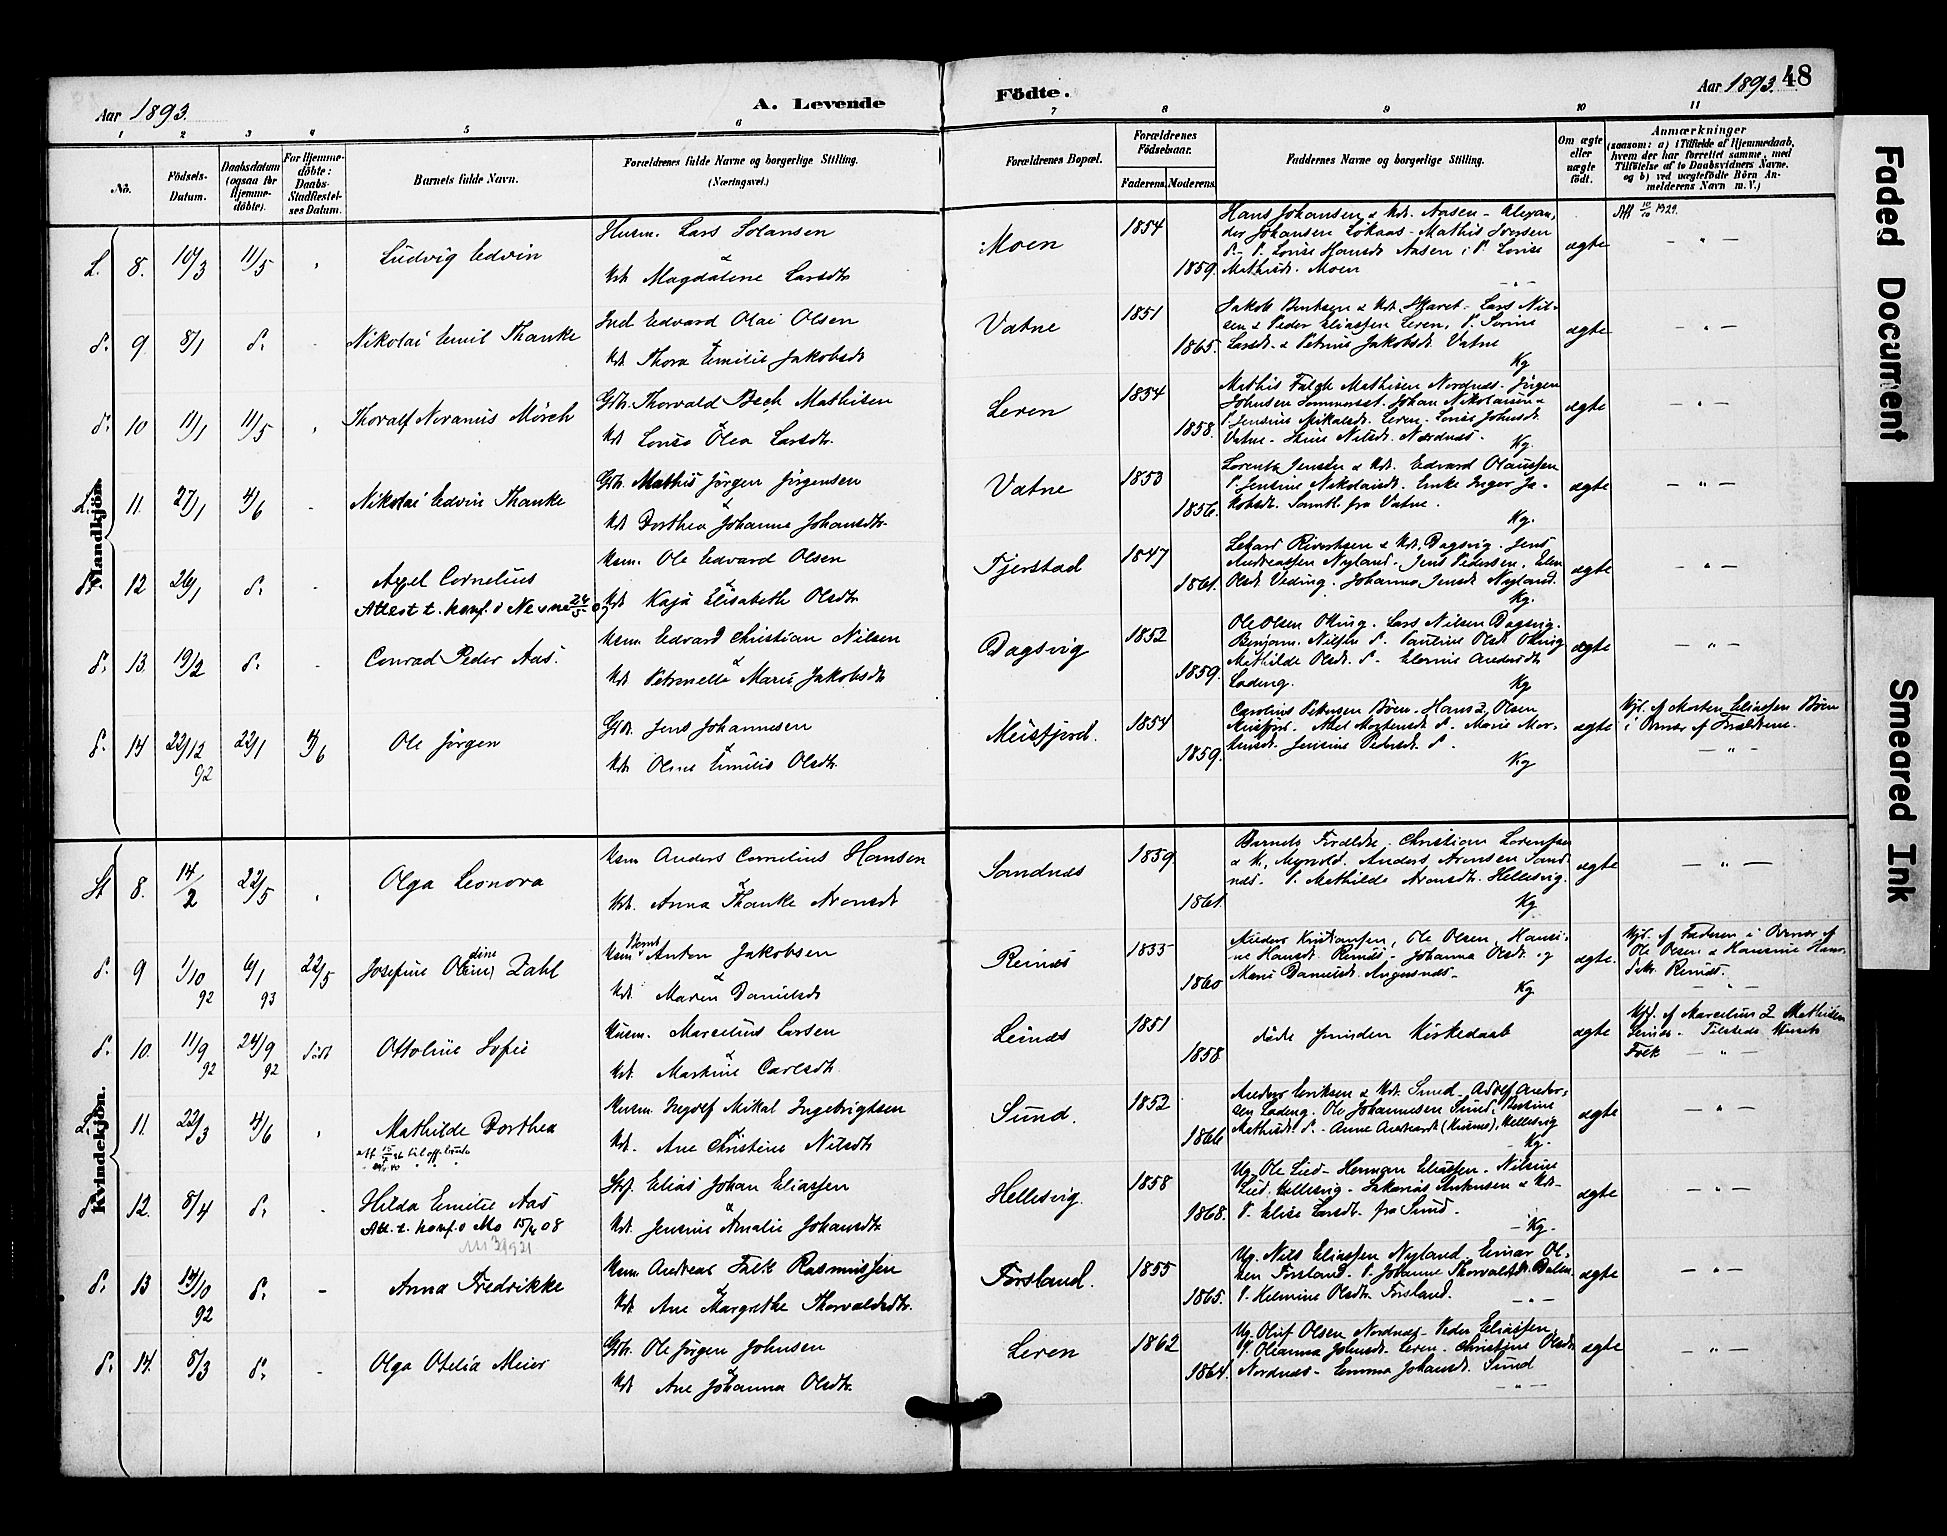 Aar 1893.
A. Levende
Fødte.
Aar 1893.
48
1 2 3 4 5 6 7 8 9 10 11
No.
Fødsels-
Datum.
Daabsdatum
(ogsaa for
Hjemme-
døbte).
For Hjemme-
døbte:
Daabs-
Stadfæstel-
ses Datum.
Barnets fulde Navn.
Forældrenes fulde Navne og borgerlige Stilling.
(Næringsvei.)
Forældrenes Bopæl.
Forældrenes
Fødselsaar.
Faderens. Moderens.
Faddernes Navne og borgerlige Stilling.
Om ægte
eller
uægte
født.
Anmærkninger
(saasom: a) i Tilfælde af Hjemmedaab,
hvem der har forrettet samme, med
Tilføielse af to Daabsvidners Navne.
og b) ved uægtefødte Børn An-
melderens Navn m. V.)
Mandkjøn.
8. 10/3 11/5
Ludvig Edvin
Husm. Lars Johansen
&
Kst. Magdalene Larsdtr
Moen
1854
1859.
Hans Johansen & Kst. Aasen - Alexan-
der Johansen Løkaas - Mathis Iversen
Mathisdt. Moen
ægte
Att 10/10 1929.
9. 8/1 d.
Nikolai Emil Thanke
Ind Edvard Olai Olsen
Kst Thora Emilie Jakobsdt
Vatne
1851
1865.
Jakob Bentsen & Kst. Skaret - Lars Nil-
sen & Peder Eliassen Leren, P. Serine
Larsdt. & Petrine Jakobsdt Vatne
Kg
ægte
10 11/1 11/5
Thoralf Noranius Mørch
Gbr. Thorvald Bech Mathisen
Kst Lovise Olea Larsdtr.
Leren
1854
1858.
Mathis Falch Mathisen Nordnæs - Jørgen
Johnsen Sommerset. Johan Nikolaisen &
P. Jensine Mikalsdt. Leren - Lovise Johnsdt.
Vatne - Stine Nilsdt. Nordnæs.
Kg.
ægte
11. 27/1 4/6
Nikolai Edvin Thanke
Gbr. Mathis Jørgen Jørgensen
Kst Dorthea Johanna Johansdtr.
Vatne
1853
1856.
Lorentz Jensen & Kst. Edvard Olaussen
P. Jensine Nikolaisdt. Enke Inger Ja-
kobsdt. Samtl. fra Vatne.
Kg.
ægte
12 26/1 d.
Axel Cornelius
Attest t. konf. i Nesne 24/5 07
Husm. Ole Edvard Olsen
Kst Kaja Elisabeth Olsdtr
Fjerstad
1847
1861.
Andreassen Nyland. Jens Pedersen. Elen
Olsdt Veding. Johanna Jensdt Nyland.
Kg.
ægte
13. 19/2 d.
Conrad Peder Aas.
Husm. Edvard Christian Nilsen
Kst Petrnelle Marie Jakobsdtr
Dagsvig
1852
1859.
Ole Olsen Otting. Lars Nilsen Dagsvig.
Benjam. Nilsen d. Pauline Olsdt Otting
Mathilde Olsdt. d -
Lading.
Kg
ægte
14 22/12 92 22/1 4/6
Ole Jørgen
Gbr. Jens Johannesen
Kst Oline Emilie Olsdtr.
Meisfjord.
1854
1859.
Carolius Petersen Bøen. Hans J. Olsen
Meisfjord. Abel Mortensdt d. Marie Mor-
tensdt. Jensine Pedersdt. d.
Kg
ægte
Hjd. af Morten Eliassen Bøen
i Nærvær af Forældrene.
Kvindekjøn.
8. 14/2 22/5
Olga Leonora
Husm Anders Cornelius Hansen
Kst. Anna Thanke Aronsdt
Sandnæs
1859
1861.
Barnets Forældre. Christian Lorentsen
& K. Myrvold. Anders Aronsen Sand-
næs. P. Mathilde Aronsdtr. Hellesvig.
Kg
ægte
9 1/10 92 6/1 93 22/5
Josefine Oldine Zahl
Husm Bernt Anton Jakobsen
Kst. Maren Danielsdt
Reinæs
1835
1860
Anders Kristiansen, Ole Olsen, Hansi-
ne Hansdt. Reinæs - Johanna Olsdt. og
Marie Danielsdt. Angersnæs -
Kg
ægte.
Hjd. af Faderen i Nærvær af
Ole Olsen & Hansine Hans-
datr. Reinæs.
10. 11/9 92 24/9 92 død
Ottoline Sofie
Husm. Marselius Larsen
Kst. Martine Carlsdtr.
Leinæs
1851
1858
døde forinden Kirkedaab
ægte
Hjd. af Marselius J. Mathisen
Leinæs - Tilstede Husets
Folk
11. 22/3 4/6
Mathilde Dorthea
Husm. Ingolf Mikal Ingebrigtsen
Kst. Ane Christine Nilsdtr
Sund.
1852
1866
Anders Eriksen & Kst. Sund - Adolf Ander-
sen Lading. Ole Johannesen Sund. Bentine
Mathisdt. d. - Anne Andersdt (Husms), Hellesvig
- Kg -
ægte
12. 8/4 d.
Hilda Emilie Aas
Att. t. konf. i Mo 15/4 08
Stf. Elias Johan Eliassen
Kst. Jensine Amalie Johansdtr
Hellesvig
1858
1868.
Ug. Ole Lied - Herman Eliassen - Nilsine
Lied. Hellesvig - Zakarias Antonsen & Kst -
P. Elise Larsdt. fra Sund.
- Kg -
ægte
13 14/10 92 d.
Anna Fredrikke
Husm. Andreas Falk Rasmussen
Kst. Ane Margrethe Thorvaldsdtr.
Forsland.
1855
1865.
Ug. Nils Eliassen Nyland. Einar Ol-
sen Forsland. P. Johanne Thorvaldsdt. Dalen
P. Helmine Olsdtr. Forsland.
ægte
14. 8/3 d.
Olga Otelia Meier
Gbr. Ole Jørgen Johnsen
Kst Ane Johanna Olsdtr.
Leren
1862
1864.
Ug. Oluf Olsen Nordnæs - Peder Eliassen
P. Olianna Johnsdt. Leren. Christine Olsdt
Nordnæs - Emma Johansdt. Sund
ægte
Faded Document
Smeared Ink